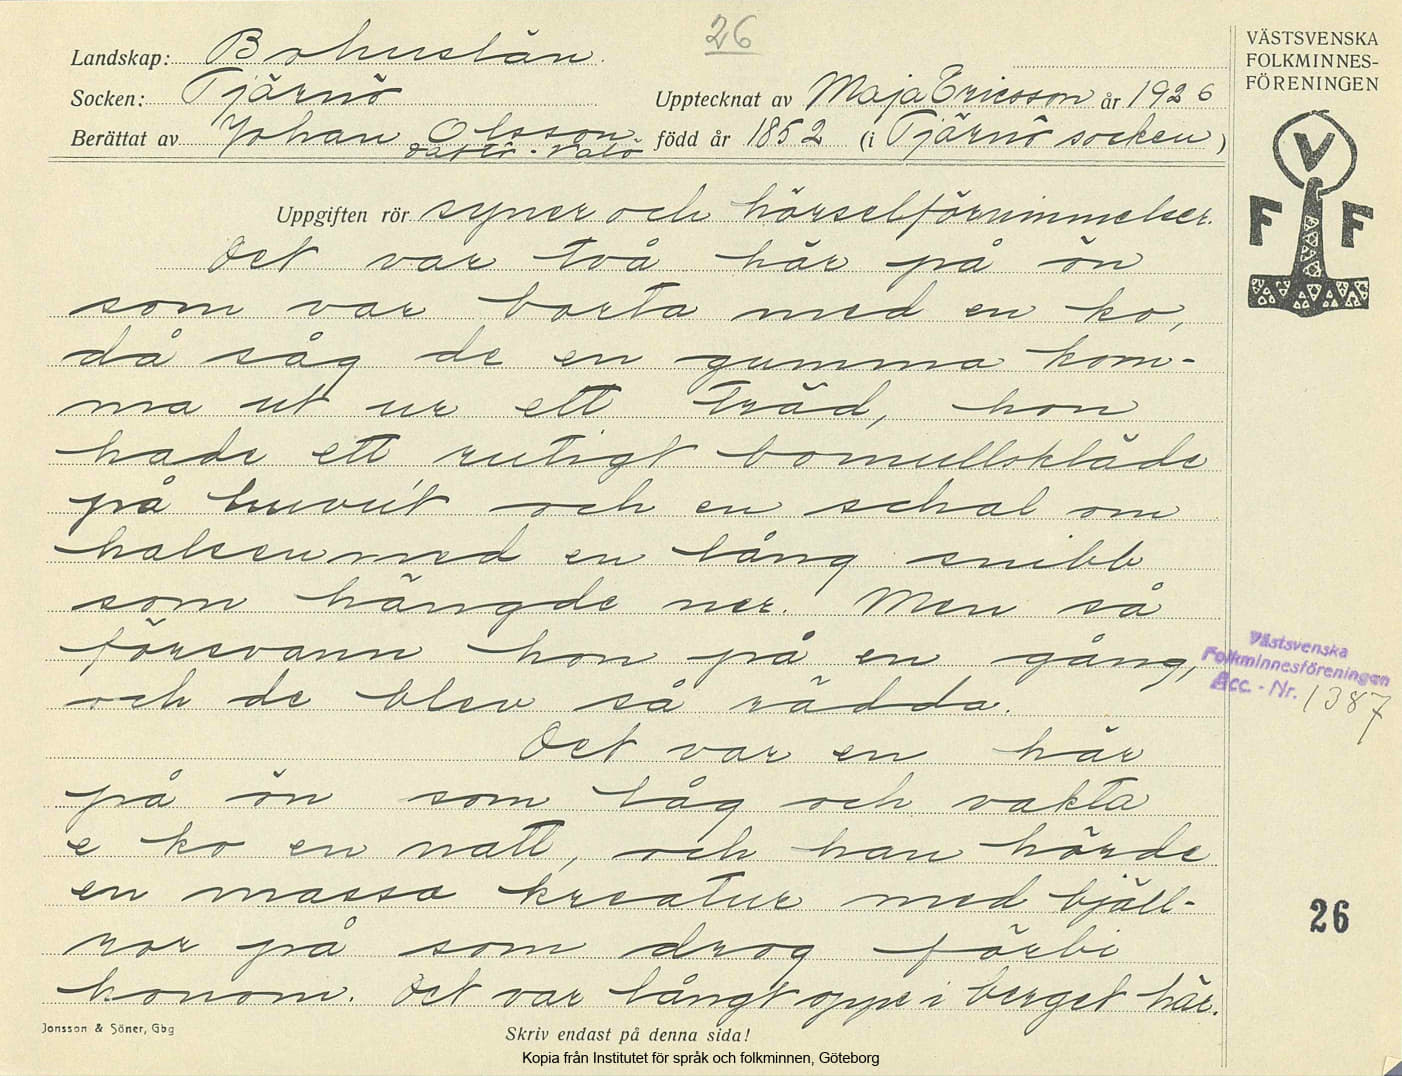 26
Landskap: Bohuslän.
Socken: Tjärnö
Upptecknat av Maja Ericsson år 1926
Berättat av Johan Olsson.
född år 1852 (i Tjärnö socken)
VÄSTSVENSKA
FOLKMINNES-
FÖRENINGEN
V
F F
Uppgiften rör syner och hörselförnimmelser.
Det var två här på ön
som var borta med en ko,
då såg de en gumma kom-
ma ut ur ett träd, hon
hade ett rutigt bomullskläde
på huvut och en schal om
halsen med en lång snibb
som hängde ner. Men så
försvann hon på en gång,
och de blev så rädda.
Det var en här
på ön som låg och vakta
e ko en natt, och han hörde
en massa kreatur med bjäll-
ror på som drog förbi
honom. Det var långt oppe i berget här.
Västsvenska
Folkminnesföreningen
Acc. - Nr. 1387
26
Jonsson & Söner, Gbg
Skriv endast på denna sida!
Kopia från Institutet för språk och folkminnen, Göteborg